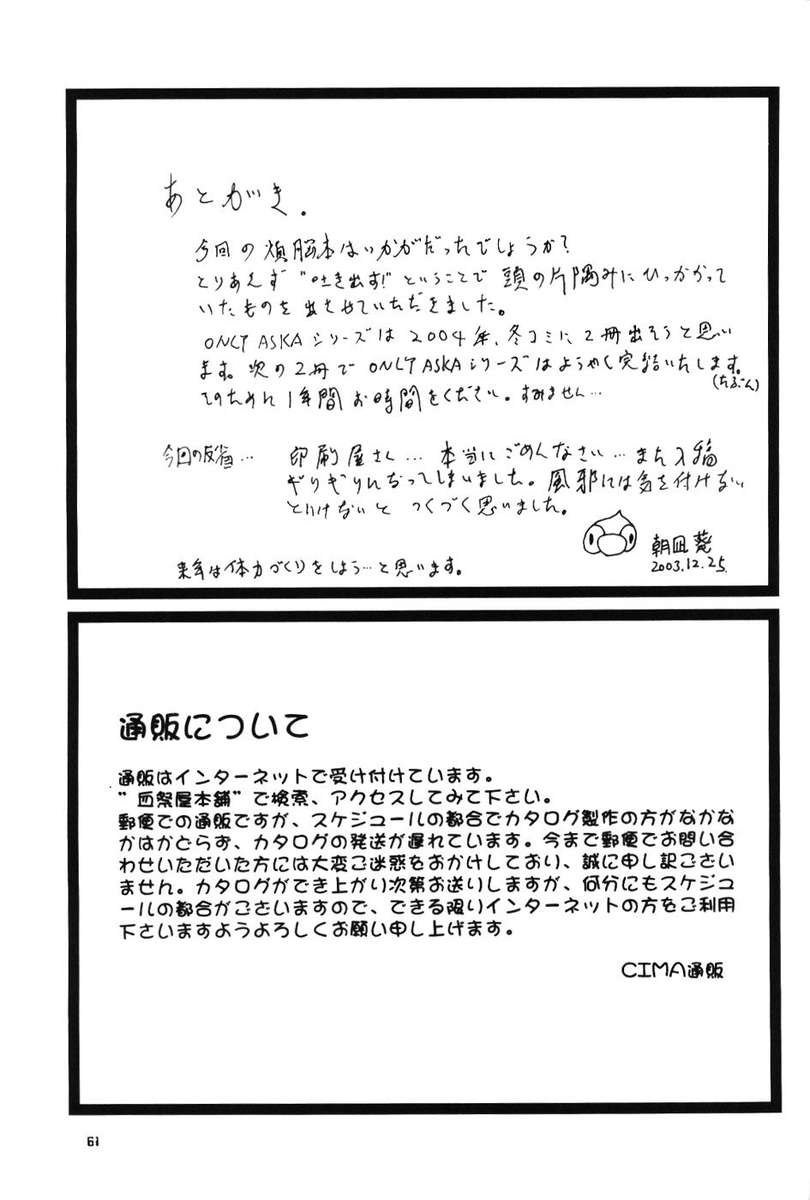 あとがき.
今回の煩脳本はいかがだったでしょうか?
とりあえず"吐き出す!"ということで 頭の片隅みにひっかかって
いたものを出させていただきました。
ONLY ASKAシリーズは2004年、冬コミに2冊出そうと思い
ます。次の2冊でONLY ASKAシリーズはようやく完結いたします。
(たぶん)
そのために1年間お時間をください。すみません…
今回の反省… 印刷屋さん… 本当にごめんなさい… また入稿
ギリギリになってしまいました。風邪には気を付けない
といけないと つくづく思いました。
朝凪葵
2003.12.25
来年は体力づくりをしよう…と思います。
通販について
通販はインターネットで受け付けています。
"血祭屋本舗"で検索、アクセスしてみて下さい。
郵便での通販ですが、スケジュールの都合でカタログ製作の方がなかな
かはかどらず、カタログの発送が遅れています。今まで郵便でお問い合
わせいただいた方には大変ご迷惑をおかけしており、誠に申し訳ござい
ません。カタログができ上がり次第お送りしますが、何分にもスケジュ
ールの都合がございますので、できる限りインターネットの方をご利用
下さいますようよろしくお願い申し上げます。
CIMA通販
61